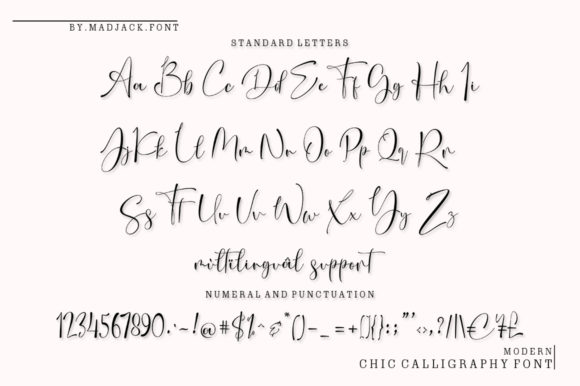 BY.MADJACK.FONT
STANDARD LETTERS
Aa Bb Cc Dd Ee Ff Gg Hh Ii
Jj Kk Ll Mm Nn Oo Pp Qq Rr
Ss Tt Uu Vv Ww Xx Yy Zz
mùltilinguâl support
NUMERAL AND PUNCTUATION
1234567890.·~!@#$%^&*()-_=+(){}:;"'‹›,.?/||\€¥£
MODERN
CHIC CALLIGRAPHY FONT